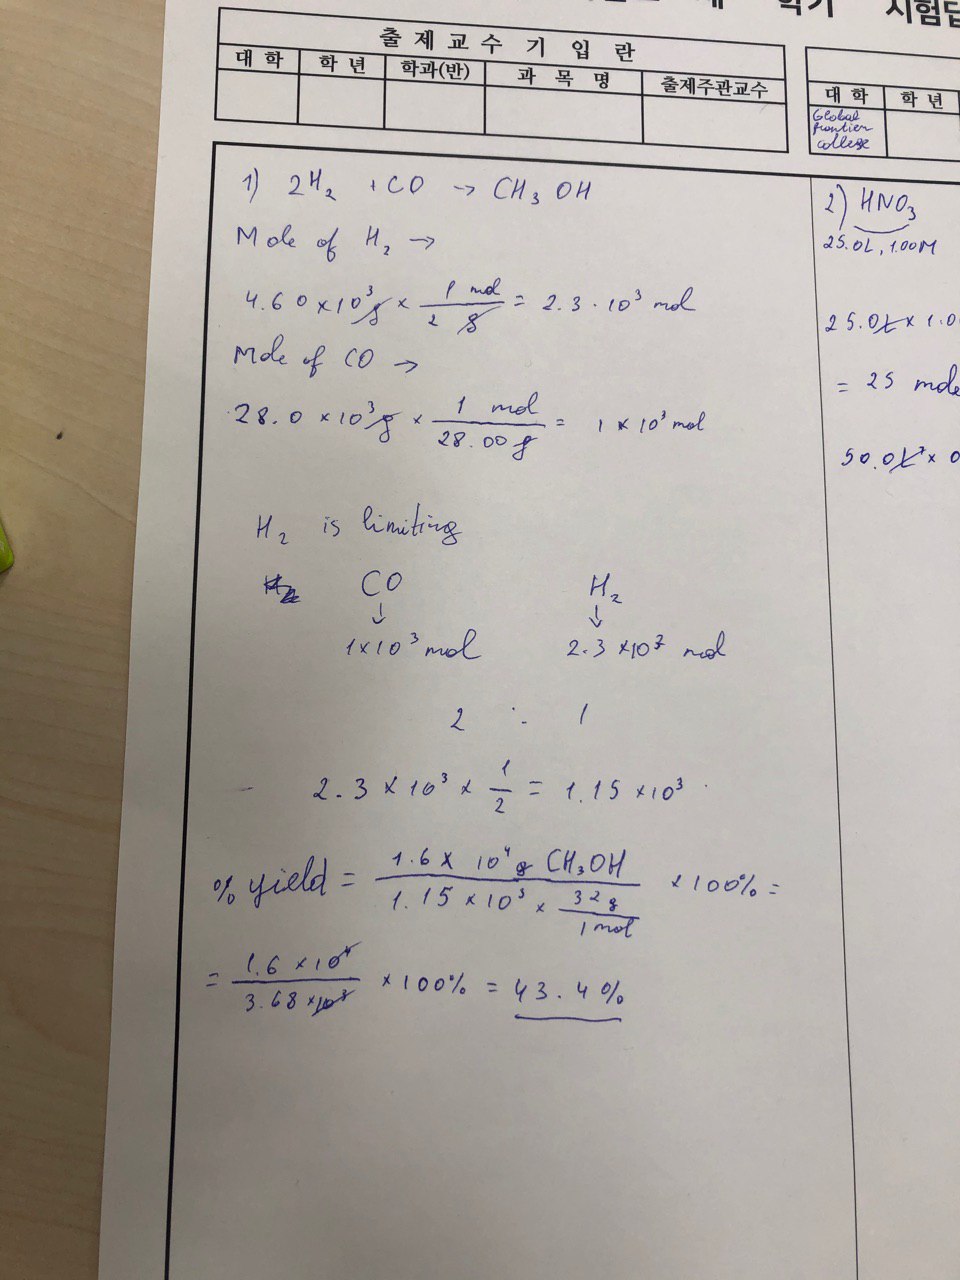 학기 시험답
출제교수 기입란
대학 학년 학과(반) 과목명 출제주관교수
대학 학년
Global
Frontier
College
1) 2H₂ + CO → CH₃OH
Mole of H₂ →
4.60 × 10³ g × 1 mol / 2 g = 2.3 · 10³ mol
Mole of CO →
28.0 × 10³ g × 1 mol / 28.00 g = 1 × 10³ mol
H₂ is limiting
CO H₂
↓ ↓
1×10³ mol 2.3 × 10³ mol
2 : 1
2.3 × 10³ × 1/2 = 1.15 × 10³
% yield = 1.6 × 10⁴ g CH₃OH / 1.15 × 10³ × 32 g / 1 mol × 100% =
= 1.6 × 10⁴ / 3.68 × 10³ × 100% = 43.4%
2) HNO₃
25.0L, 1.00M
25.0L × 1.0
= 25 mole
50.0L × 0